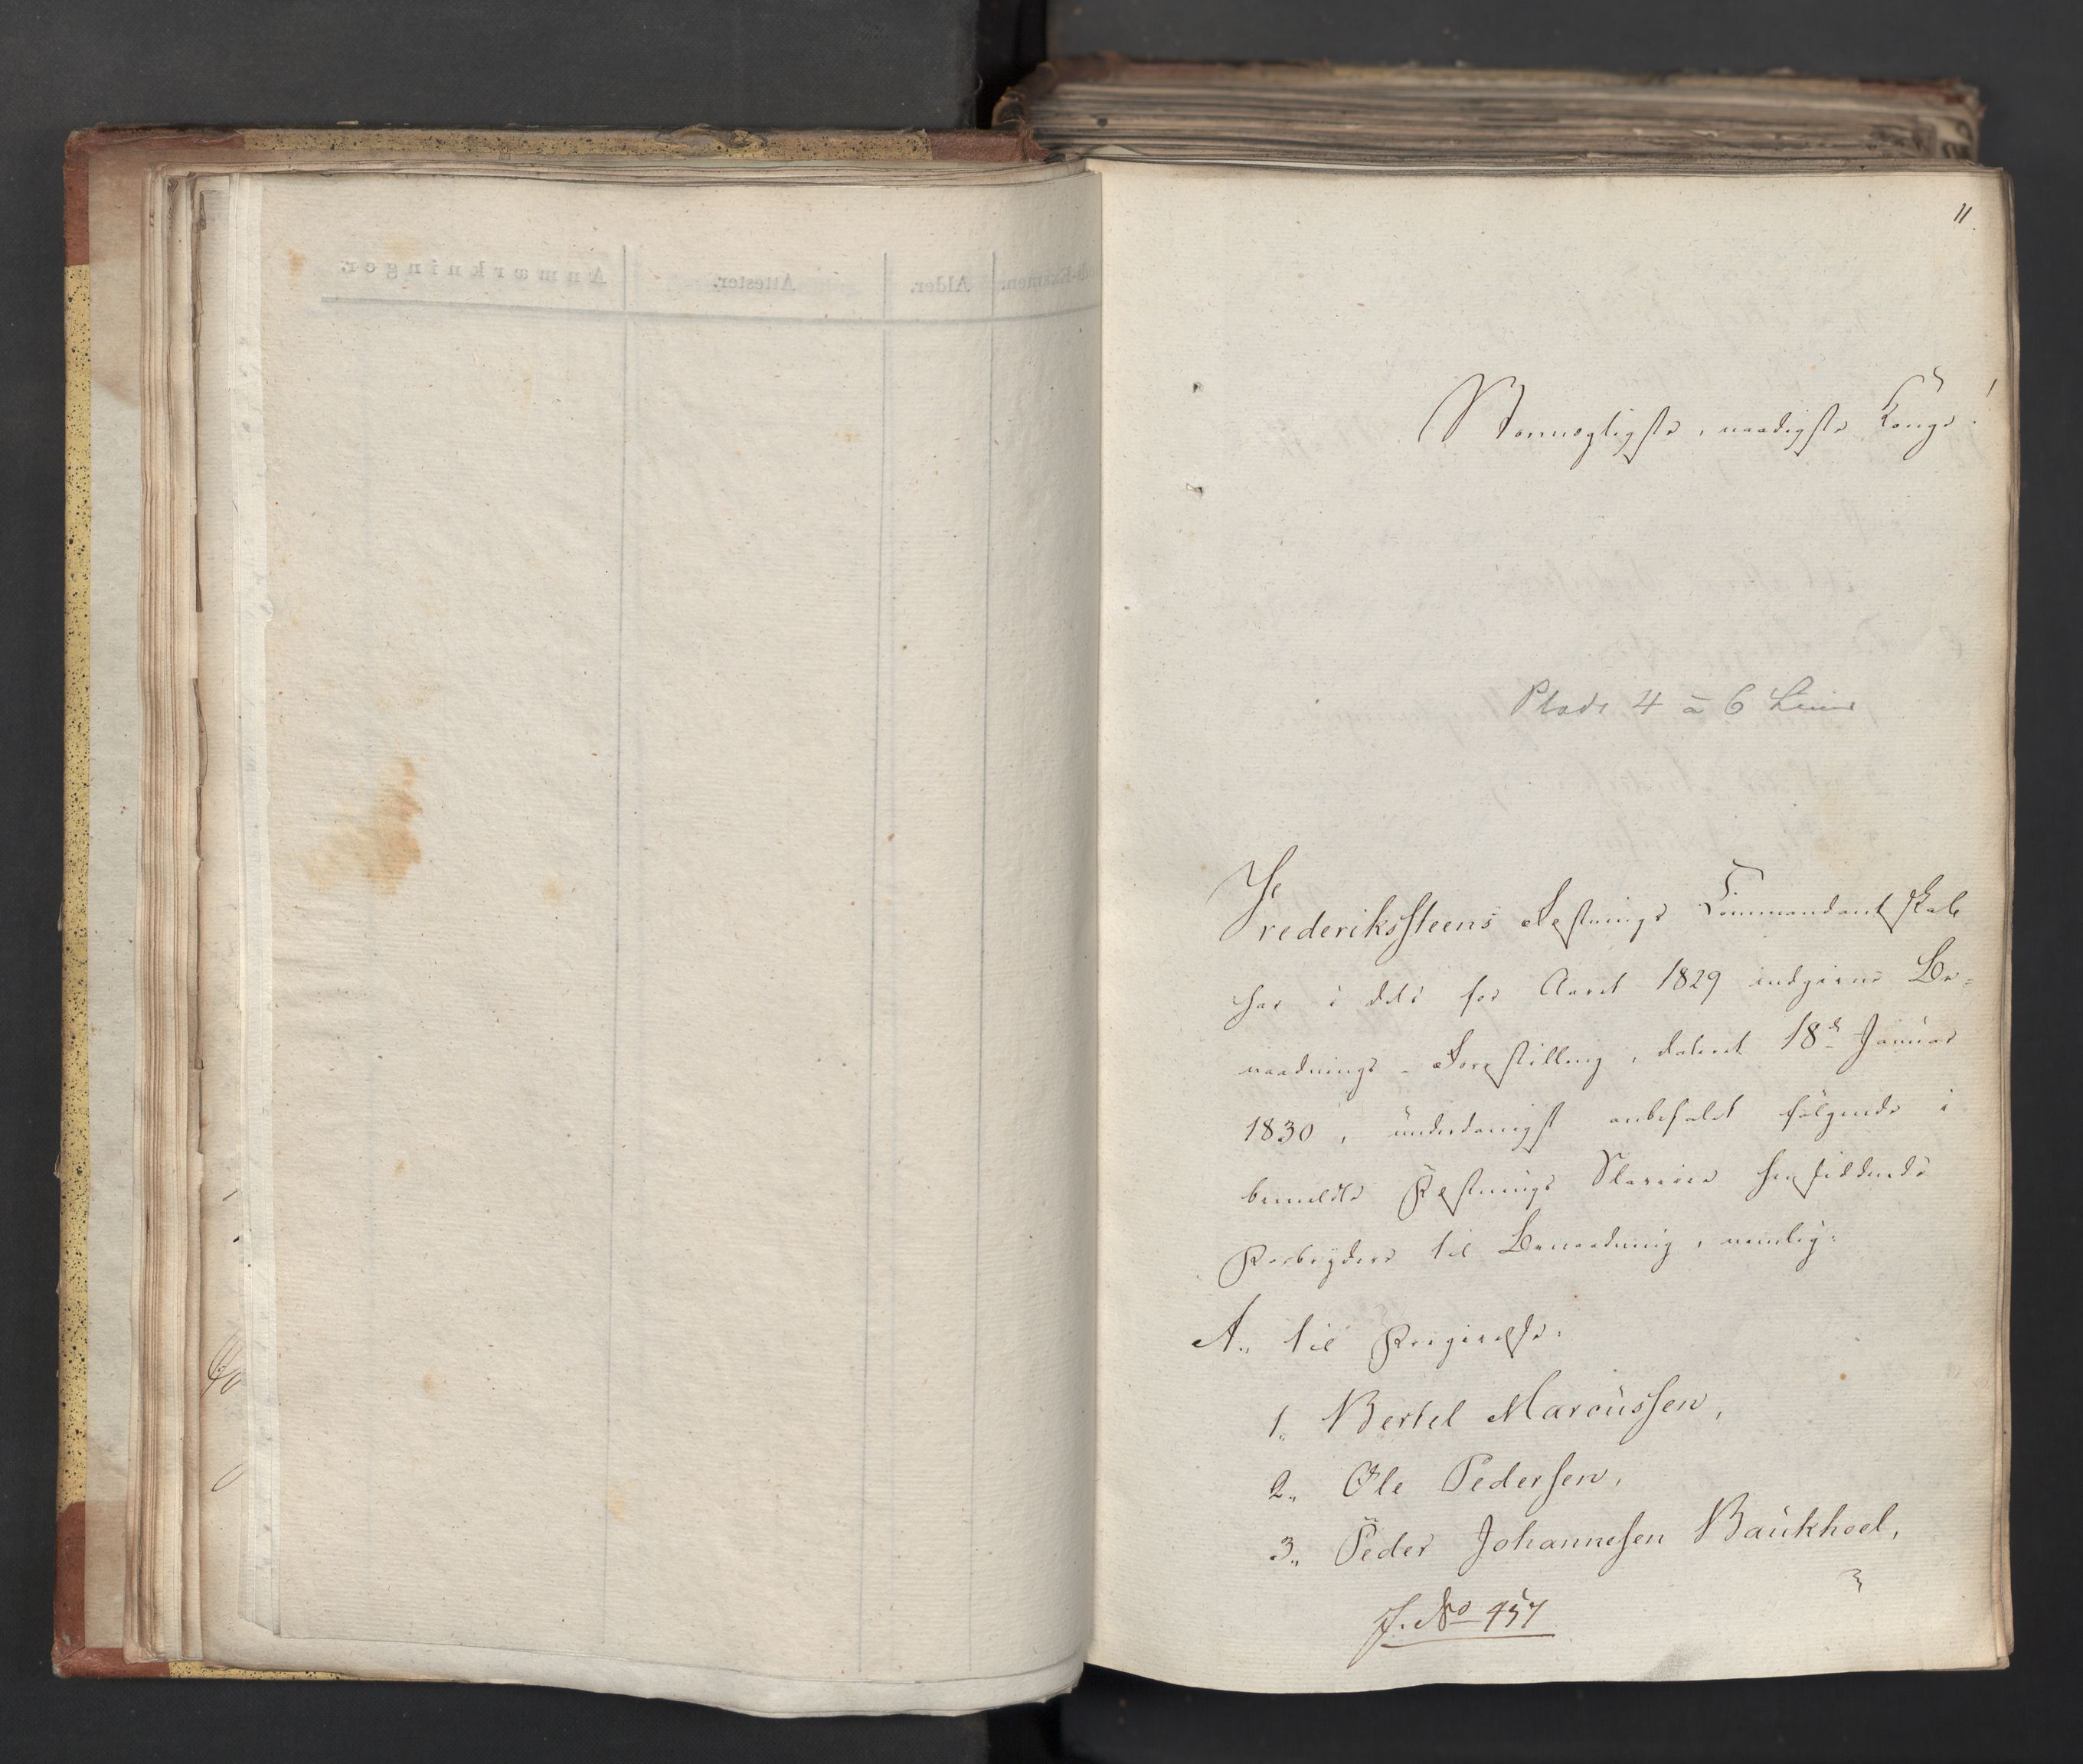 11
Stormægtigste, naadigste Konge!
Plads 4 à 6 Linier
Frederikssteens Fæstnings Commandantskab
har i dets for Aaret 1829 indgivne Be=
naadnings-Forestilling, dateret 18de Januar
1830, underdanigst anbefalet følgende i
bemeldte Fæstnings Slaverie hensiddende
Forbrydere til Benaadning, nemlig:
A., til Frigivelse:
1., Bertel Marcussen,
2., Ole Pedersen,
3., Peder Johannesen Baukhoel,
J. No 457
Anmærkninger.
Attester.
Alder.